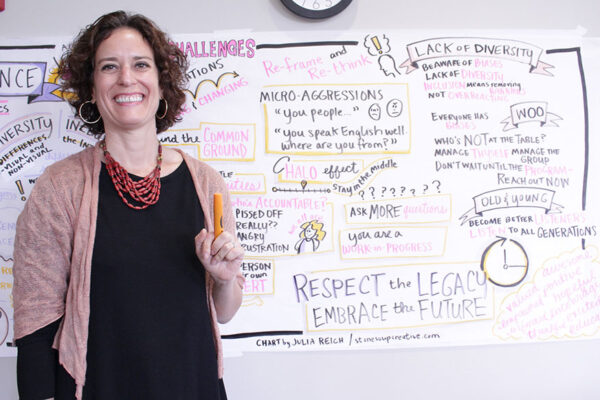 NCE
CHALLENGES
CHANGING
DIVERSITY
DIFFERENCES
VISUAL and
NON-VISUAL
COMMON
GROUND
Who's ACCOUNTABLE?
PISSED OFF
REALLY??
ANGRY
Re-frame and
Re-think
MICRO-AGGRESSIONS
"you people..."
"you speak English well.
where are you from?"
HALO effect
Stay in the middle
? ? ? ? ? ? ?
ASK MORE questions
you are a
WORK-in-PROGRESS
RESPECT the LEGACY
EMBRACE the FUTURE
CHART by JULIA REICH / stonesoupcreative.com
LACK OF DIVERSITY
BEWARE OF BIASES
LACK OF DIVERSITY
INCLUSION means REMOVING
NOT OVERREACTING
EVERYONE HAS
BIASES
WOO
WHO'S NOT AT the TABLE?
MANAGE THYSELF MANAGE THE
GROUP
DON'T WAIT UNTIL THE PROGRAM-
REACH OUT NOW
OLD & YOUNG
BECOME BETTER LISTENERS
LISTEN to ALL GENERATIONS